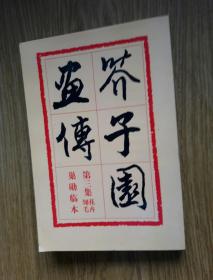 芥子園
畫傳
第三集 花卉翎毛
巢勛临本